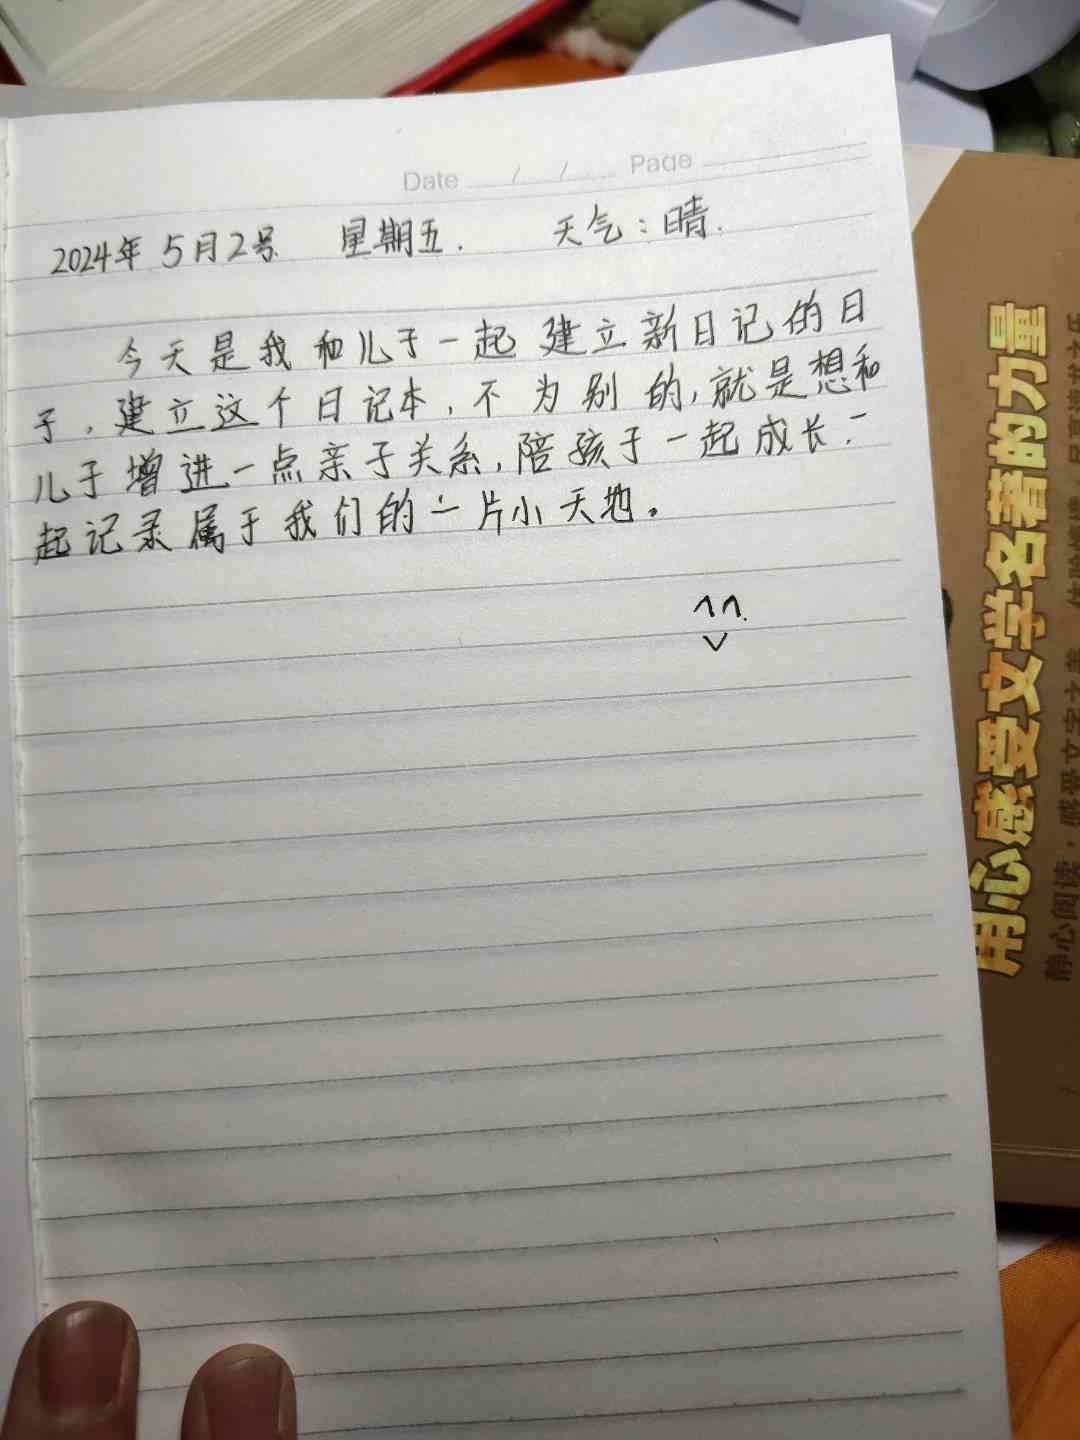 Date / / Page
2024年 5月2号 星期五. 天气：晴.
今天是我和儿子一起建立新日记的日
子，建立这个日记本，不为别的，就是想和
儿子增进一点亲子关系，陪孩子一起成长.一
起记录属于我们的一片小天地。
用心感受文学名著的力量
静心阅读·感受文字之美